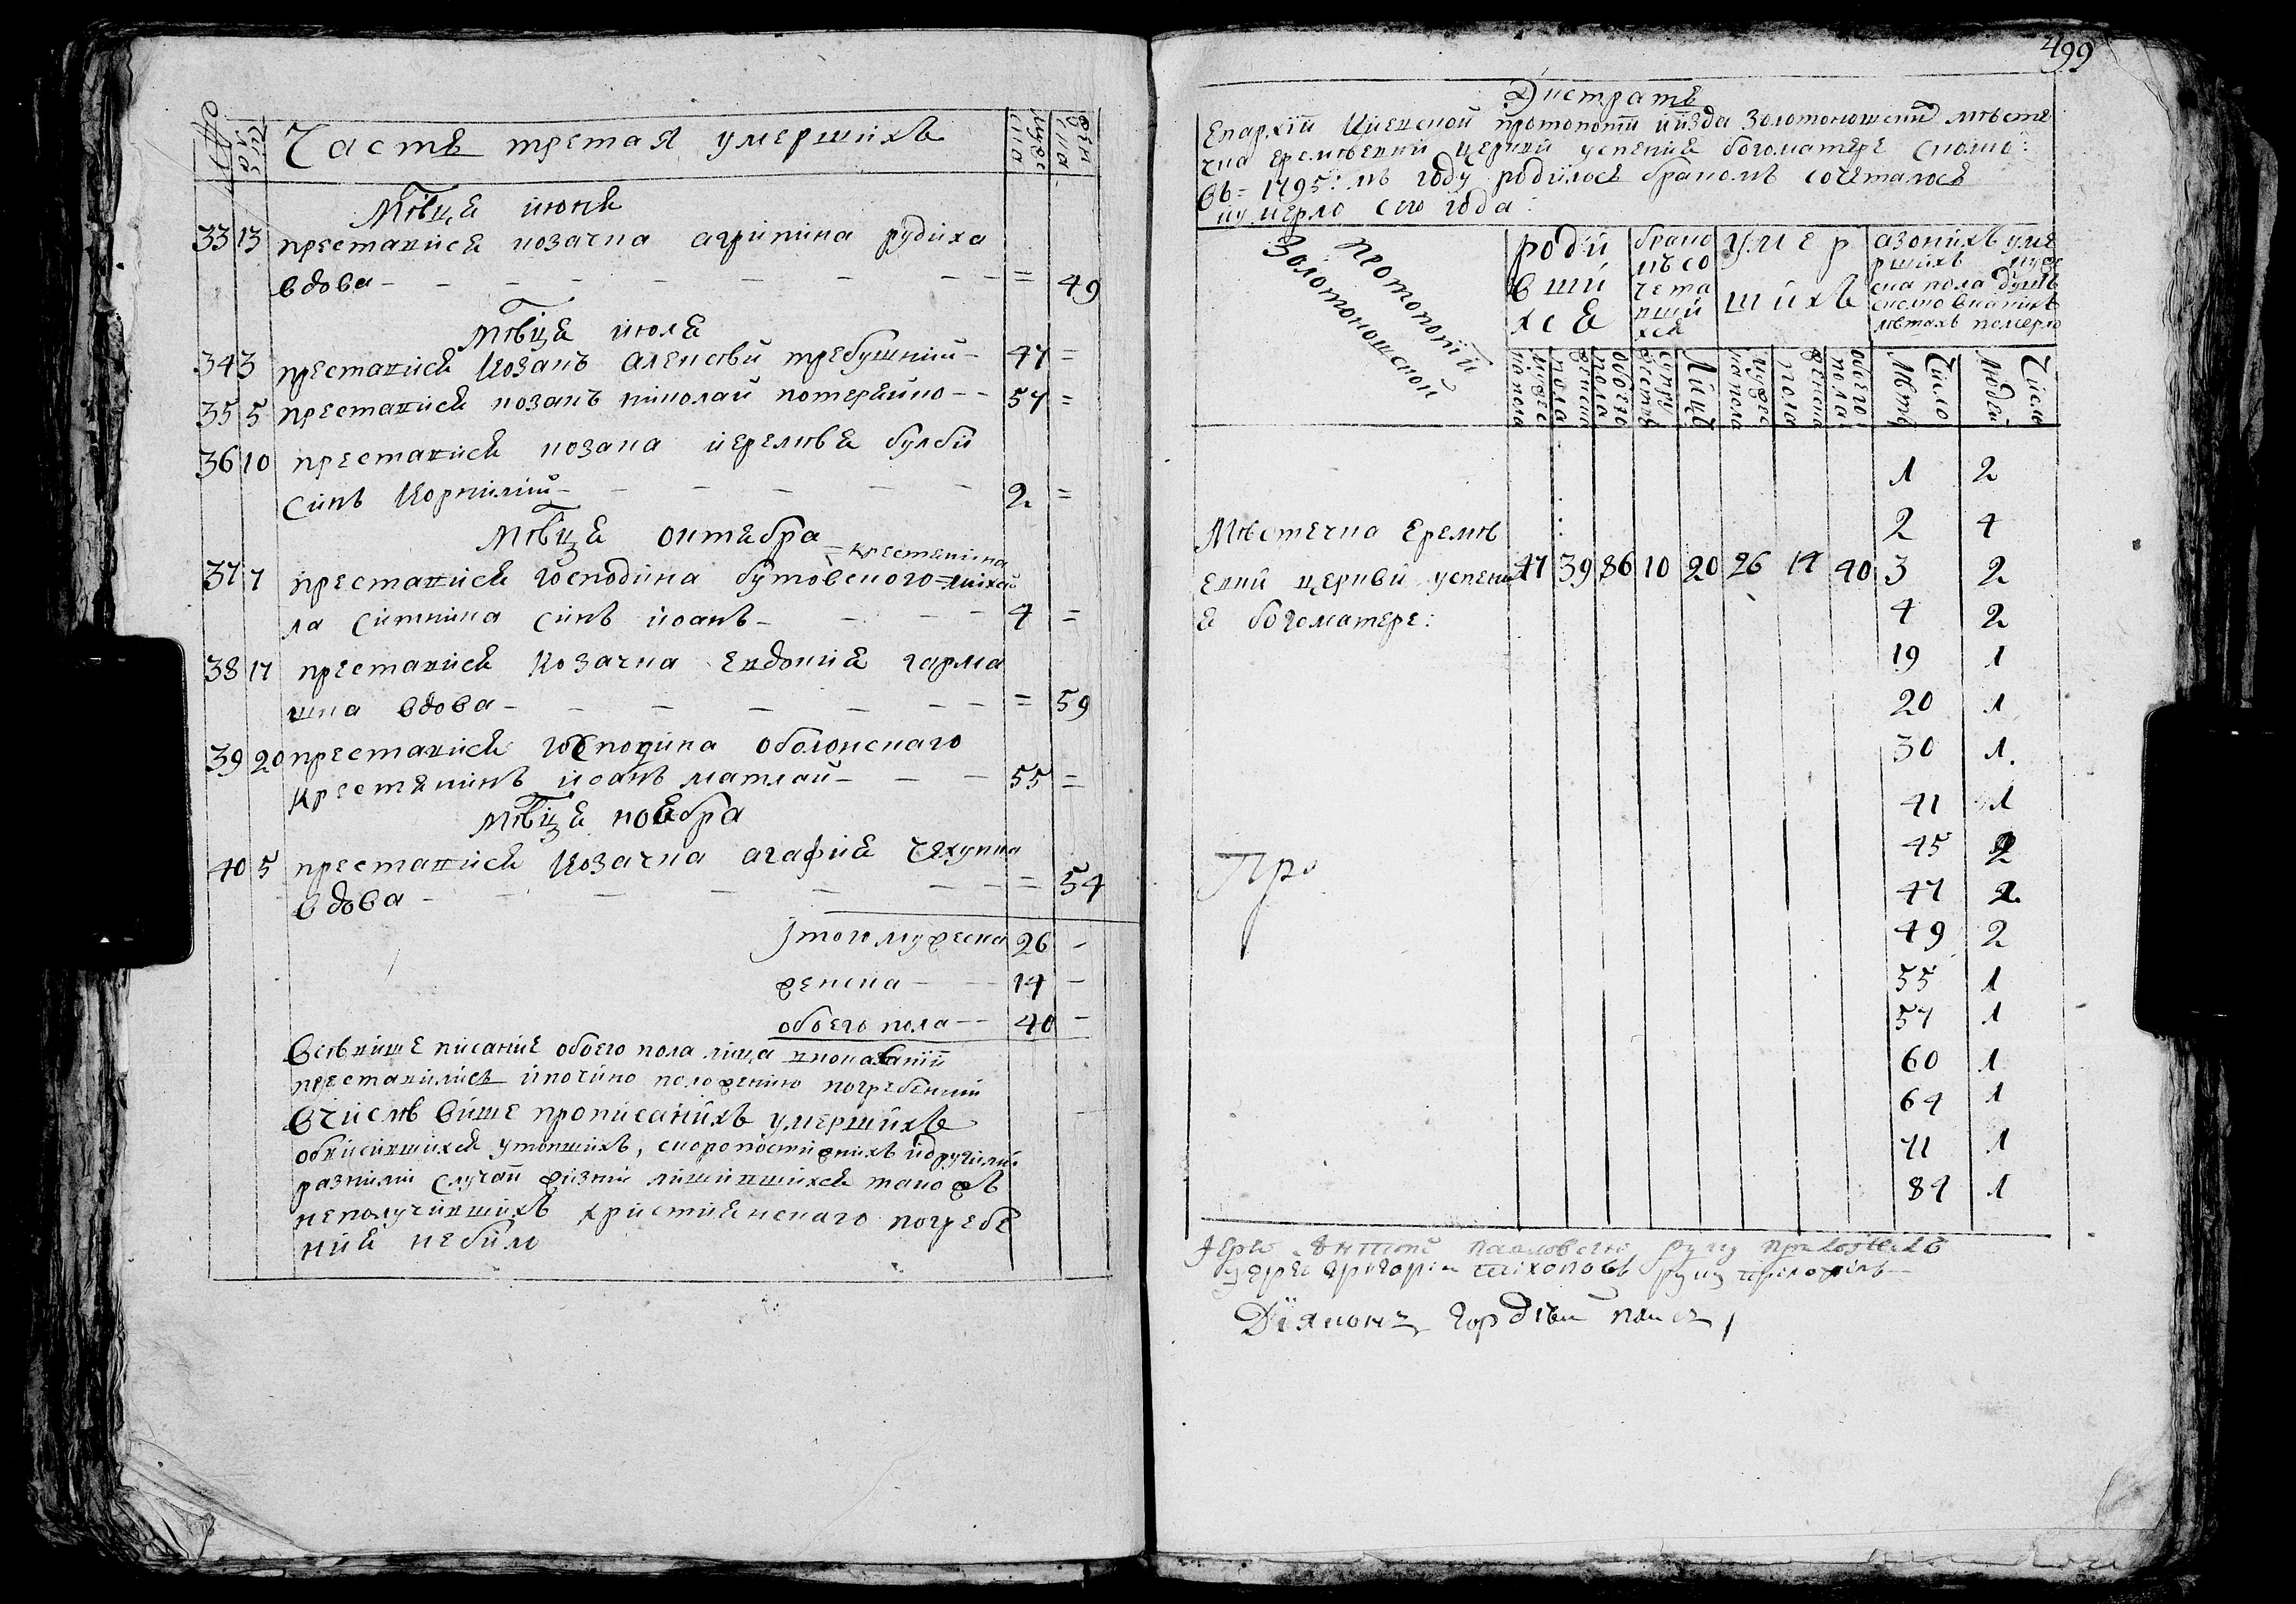 Часть третая умершихъ
Мѣсца июня
33 13 преставися козачка агрипина рудиха
вдова = 49
Мѣсца июля
34 3 преставися козакъ алексѣй требушний 47 =
35 5 преставися козакъ николай потерейко 57 =
36 10 преставися козака иеремѣя булби
синъ корнилий 2 =
Мѣсца октября
крестянина
37 7 преставися господина бутовского михай
ла ситника синъ иоанъ 4 =
38 17 преставися козачка евдокия гарма
шка вдова = 59
39 20 преставися господина оболонскаго
крестянинъ иоанъ матлай 55 =
Мѣсца ноября
40 5 преставися козачка агафия
вдова = 54
итого мужеска 26 -
женска 14 -
обоего пола 40 -
всѣ више писание обоего пола лица
преставились и по чино положению погребении
вчислѣ више прописанихъ умершихъ
обвисившихся утопшихъ, скоропостижнихъ и другими
разними случаи жизни лишившихся такожъ
неполучившихъ християнскаго погребе
ния небило
499
Епархии Киевской протопопии и изда золотоношский мѣсте
чка еремѣевки церкви успения богоматере сколко
въ 1795: мъ году родилось бракомъ сочеталось
и умерло сего года:
Протопопии
Золотоношской
роди
вши
хся
брако
мъ со
чета
вши
хся
умер
шихъ
азонихъ уме
ршихъ муже
ска пола душъ
сколко вкакихъ
лѣтахъ померло
мужес
ка пола
женска
пола
обоего
пола
супру
жествъ
Лицъ
мужес
ка пола
женска
пола
обоего
пола
Число
лѣтъ
Число
людей
1 2
2 4
Мѣстечка Еремѣ
евки церкви успени
я богоматере:
47 39 86 10 20 26 14 40 3 2
4 2
19 1
20 1
30 1
41 1
45 2
47 2
49 2
55 1
57 1
60 1
64 1
71 1
84 1
Про
Иерей Антоний руку приложилъ
Иерей Григорий Тихоновъ руку приложилъ
Дїяконъ Гордѣй